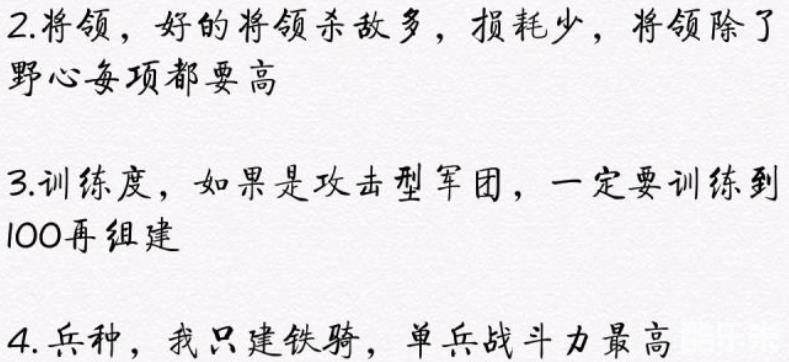 2.将领，好的将领杀敌多，损耗少，将领除了
野心每项都要高
3.训练度，如果是攻击型军团，一定要训练到
100再组建
4.兵种，我只建铁骑，单兵战斗力最高